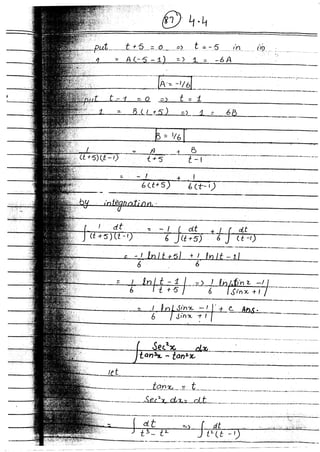 87 4.4
put t + 5 = 0 => t = -5 in (i)
1 = A(-5 - 1) => 1 = -6A
A = -1/6
put t - 1 = 0 => t = 1
1 = B(1 + 5) => 1 = 6B
B = 1/6
1/((t+5)(t-1)) = A/(t+5) + B/(t-1)
= -1/(6(t+5)) + 1/(6(t-1))
by integration.
∫ 1 dt/((t+5)(t-1)) = -1/6 ∫ dt/(t+5) + 1/6 ∫ dt/(t-1)
= -1/6 ln|t+5| + 1/6 ln|t-1|
= 1/6 ln|(t-1)/(t+5)| => 1/6 ln|(sinx -1)/(sinx +1)|
= 1/6 ln|(sinx -1)/(sinx +1)| + c Ans.
∫ Sec²x/(tan³x - tan²x) dx
let
tanx = t
Sec²x dx = dt
= ∫ dt/(t³ - t²) => ∫ dt/(t²(t - 1))